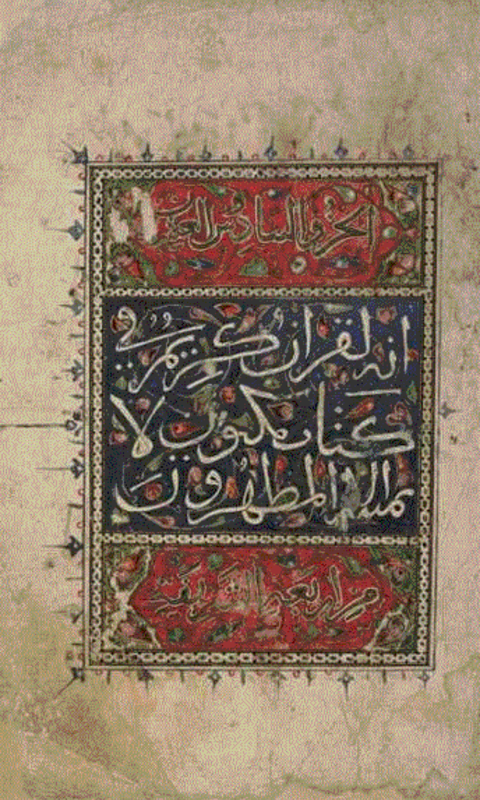 الجزو السادس العشرين
انه لقران كريم في
كتاب مكنون لا
يمسه الا المطهرون
من اربعه الشريفة